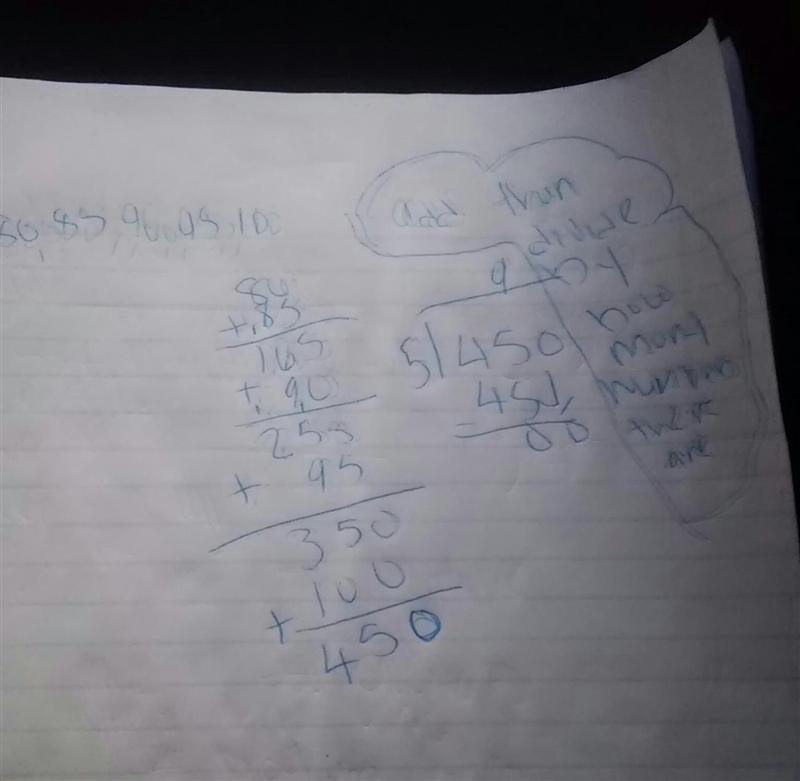 80,85,90,95,100
80
+ 85
165
+ 90
255
+ 95
350
+ 100
450
add then
divide
by
how
many
numbers
there
are
9
5 450
45
00